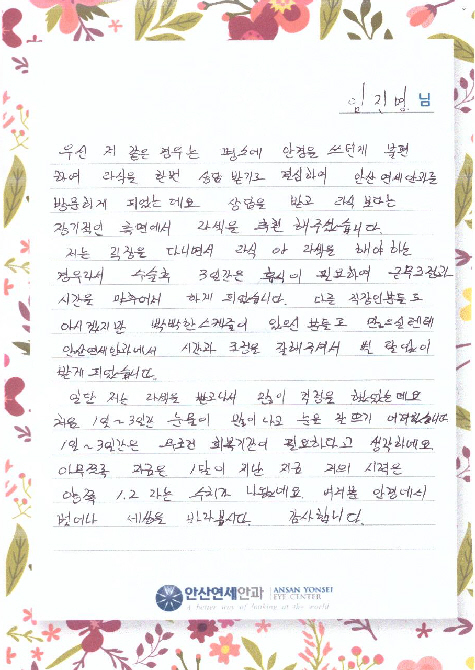 임진명 님
우선 저 같은 경우는 평소에 안경을 쓰던게 불편
하여 라식을 한번 상담 받기로 결심하여 안산연세안과를
방문하게 되었는데요 상담을 받고 라식 보다는
장기적인 측면에서 라섹을 추천 해주셨습니다.
저는 직장을 다니면서 라식 or 라섹을 해야 하는
경우라서 수술후 3일간은 휴식이 필요하여 근무조정과
시간을 맞추어서 하게 되었습니다. 다른 직장인분들도
아시겠지만 빡빡한 스케줄이 있으신 분들도 많으실텐데
안산연세안과에서 시간과 조절을 잘해주셔서 별 탈없이
받게 되었습니다.
일단 저는 라섹을 받고나서 많이 걱정을 했었는데요
처음 1일~3일간 눈물이 많이 나고 눈을 잘 뜨기 어려웠습니다
1일~3일간은 무조건 회복기간이 필요하다고 생각하네요
아무쪼록 지금은 1달이 지난 지금 저의 시력은
양쪽 1.2 라는 수치가 나왔네요 여러분 안경에서
벗어나 세상을 바라봅시다. 감사합니다.
안산연세안과 ANSAN YONSEI EYE CENTER
A better way of looking at the world